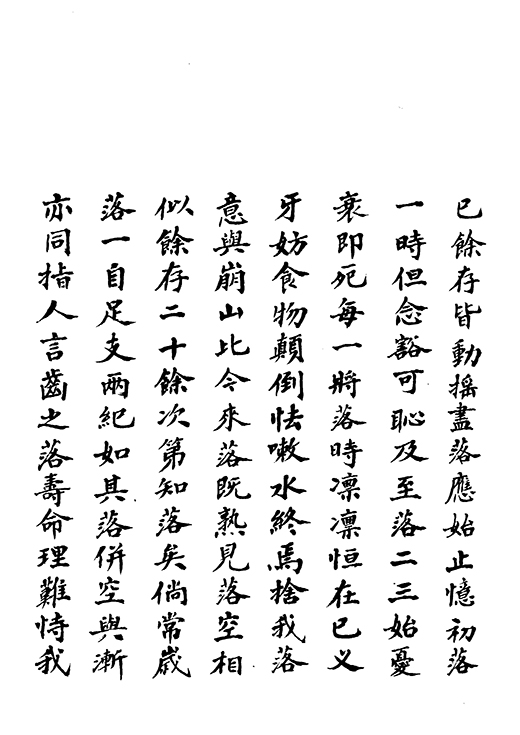 已餘存皆動搖盡落應始止憶初落
一時但念豁可恥及至落二三始憂
衰即死每一將落時凛凛恒在己叉
牙妨食物顛倒怯嗽水終焉捨我落
意與崩山比今來落既熟見落空相
似餘存二十餘次第知落矣倘常歲
落一自足支兩紀如其落併空與漸
亦同指人言齒之落壽命理難恃我